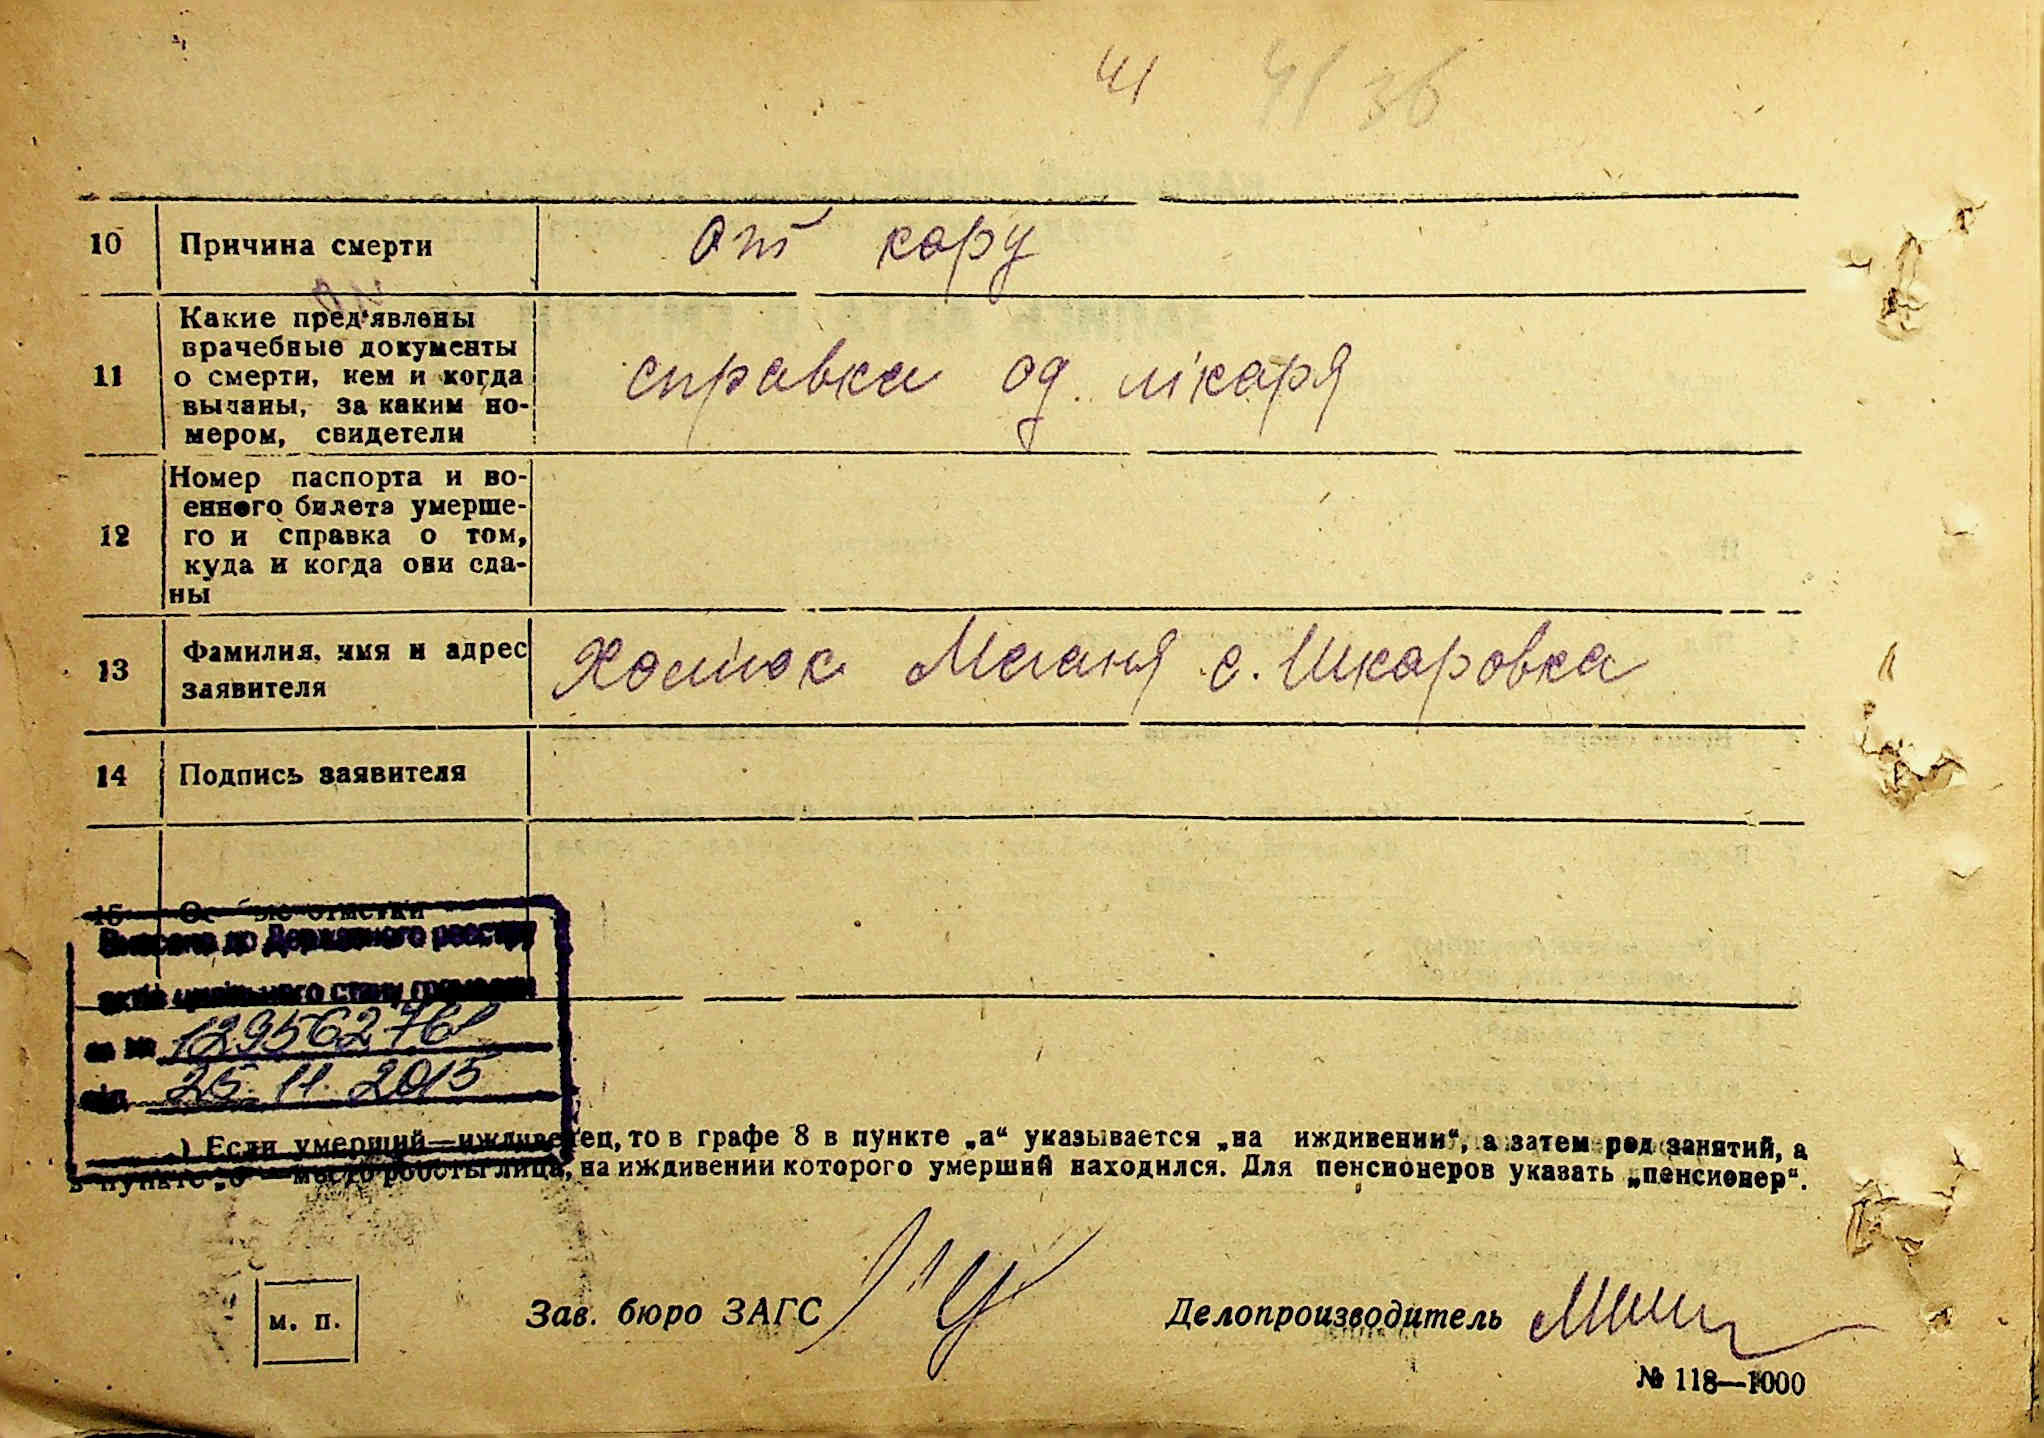 41 41 36
10 Причина смерти от кору
11 Какие пред'явлены
врачебные документы
о смерти, кем и когда
выданы, за каким но-
мером, свидетели
справка од. лікаря
12 Номер паспорта и во-
енного билета умерше-
го и справка о том,
куда и когда они сда-
ны
13 Фамилия, имя и адрес
заявителя
с. Шкаровка
14 Подпись заявителя
15 Особые отметки
Внесено до Державного реєстру
актів цивільного стану громадян
за №
від 26. 11. 2015
) Если умерший—иждивенец, то в графе 8 в пункте „а“ указывается „на иждивении“, а затем род занятий, а
в пункте „б“ — место работы лица, на иждивении которого умерший находился. Для пенсионеров указать „пенсионер“.
м. п.
Зав. бюро ЗАГС
Делопроизводитель
№ 118—1000